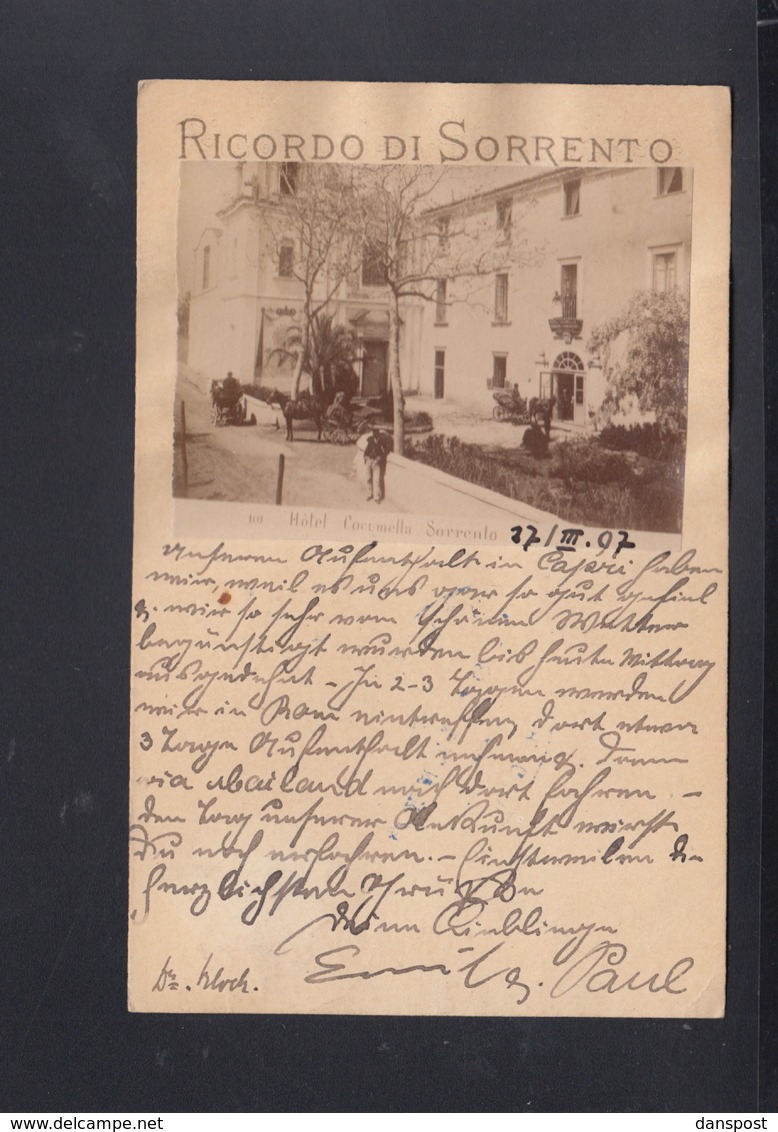 RICORDO DI SORRENTO
101 Hôtel Cocumella Sorrento
27/III.97
Unseren Aufenthalt in Capri haben
wir, weil es uns gar so gut gefiel
& wir so sehr vom schönen Wetter
begünstigt wurden bis heute Mittag
ausgedehnt – In 2-3 Tagen werden
wir in Rom eintreffen, dort etwa
3 Tage Aufenthalt nehmen &. dann
via Mailand nach dort fahren. –
den Tag unserer Ankunft wirst
Du noch erfahren. – Einstweilen die
herzlichsten Grüße von
Deine Lieblinge
Emil &. Paul
Dr. Kloch.
www.delcampe.net
danspost